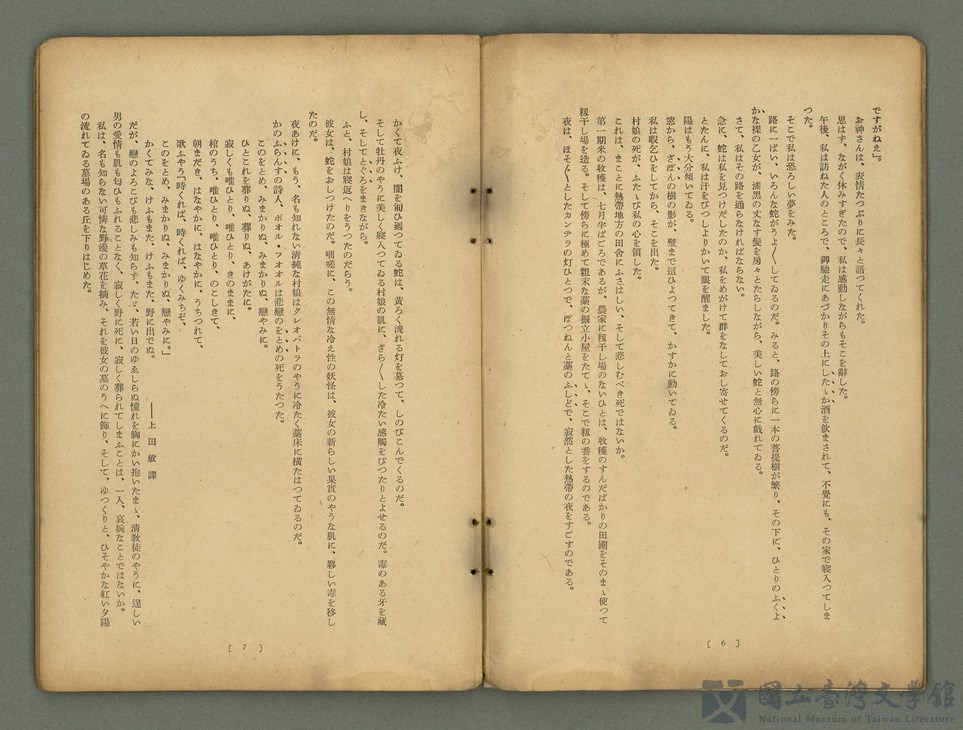 ですがねえ』。
お神さんは、表情たつぷりに長々と語つてくれた。
思はず、ながく休みすぎたので、私は感動しながらもそこを辭した。
午後、私は訪ねた人のところで、御馳走にあづかりその上にしたゝか酒を飲まされて、不覺にも、その家で寝入つてしま
つた。
そこで私は恐ろしい夢をみた。
路に一ぱい、いろんな蛇がうよ〳〵してゐるのだ。みると、路の傍らに一本の菩提樹が繁り、その下に、ひとりのふくよ
かな裸の乙女が、漆黒の丈なす髪を房々とたらしながら、美しい蛇と無心に戯れてゐる。
さて、私はその路を通らなければならない。
急に、蛇は私を見つけだしたのか、私をめがけて群をなしておし寄せてくるのだ。
とたんに、私は汗をびつしよりかいて眼を醒ました。
陽はもう大分傾いてゐる。
窓から、ざぼんの樹の影が、壁まで這ひよつてきて、かすかに動いてゐる。
私は暇乞ひをしてから、そこを出た。
村娘の死が、ふたゝび私の心を領した。
これは、まことに熱帶地方の田舎にふさはしい、そして悲しむべき死ではないか。
第一期米の收穫は、七月半ばごろであるが、農家に籾干し場のないひとは、收穫のすんだばかりの田圃をそのまゝ使つて
籾干し場を造る。そして傍らに極めて粗末な藁の掘立小屋をたてゝ、そこで籾の番をするのである。
夜は、ほそ〴〵としたカンテラの灯ひとつで、ぽつねんと藁のふしどで、寂然とした熱帶の夜をすごすのである。
[ 6 ]
かくて夜ふけ、闇を匍ひ廻つてゐる蛇は、黄ろく洩れる灯を慕つて、しのびこんでくるのだ。
そして牡丹のやうに美しく寝入つてゐる村娘の肌に、さら〳〵した冷たい感觸をぴつたりとよせるのだ。毒のある牙を藏
し、そしてとぐろをまきながら。
ふと、村娘は寝返へりをうつたのだらう。
彼女は、蛇をおしつけたのだ。咄嗟に、この無情な冷え性の妖怪は、彼女の新らしい果實のやうな肌に、夥しい毒を移し
たのだ。
夜あけに、もう、名も知れない清純な村娘はクレオパトラのやうに冷たく藁床に横たはつてゐるのだ。
かのふらんすの詩人、ポオル・フオオルは悲戀のをとめの死をうたつた。
このをとめ、みまかりぬ、みまかりぬ、戀やみに。
ひとこれを葬りぬ、葬りぬ、あけがたに。
寂しくも唯ひとり、唯ひとり、きのままに、
棺のうち、唯ひとり、唯ひとり、のこしきて、
朝まだき、はなやかに、はなやかに、うちつれて、
歌ふやう「時くれば、時くれば、ゆくみちぞ、
このをとめ、みまかりぬ、みまかりぬ、戀やみに。」
かくてみな、けふもまた、けふもまた、野に出でぬ。
――上田敏譯
だが、戀のよろこびも悲しみも知らず、たゞ、若い日のゆゑしらぬ憧れを胸にかい抱いたまゝ、清敎徒のやうに、逞しい
男の愛情も肌も匂ひもふれることなく、寂しく野に死に、寂しく葬られてしまふことは、一入、哀婉なことではないか。
私は、名も知らない可憐な野邊の草花を摘み、それを彼女の墓のうへに飾り、そして、ゆつくりと、ひそやかな紅い夕陽
の流れてゐる墓場のある丘を下りはじめた。
[ 7 ]
國立臺灣文學館
National Museum of Taiwan Literature